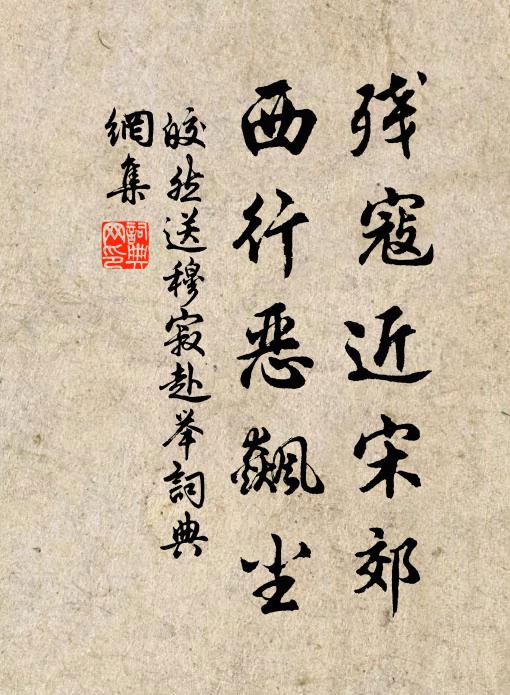 残寇近宋郊
西行恶飙尘
皎然送穆寂赴举詞典
網集
詞典网印